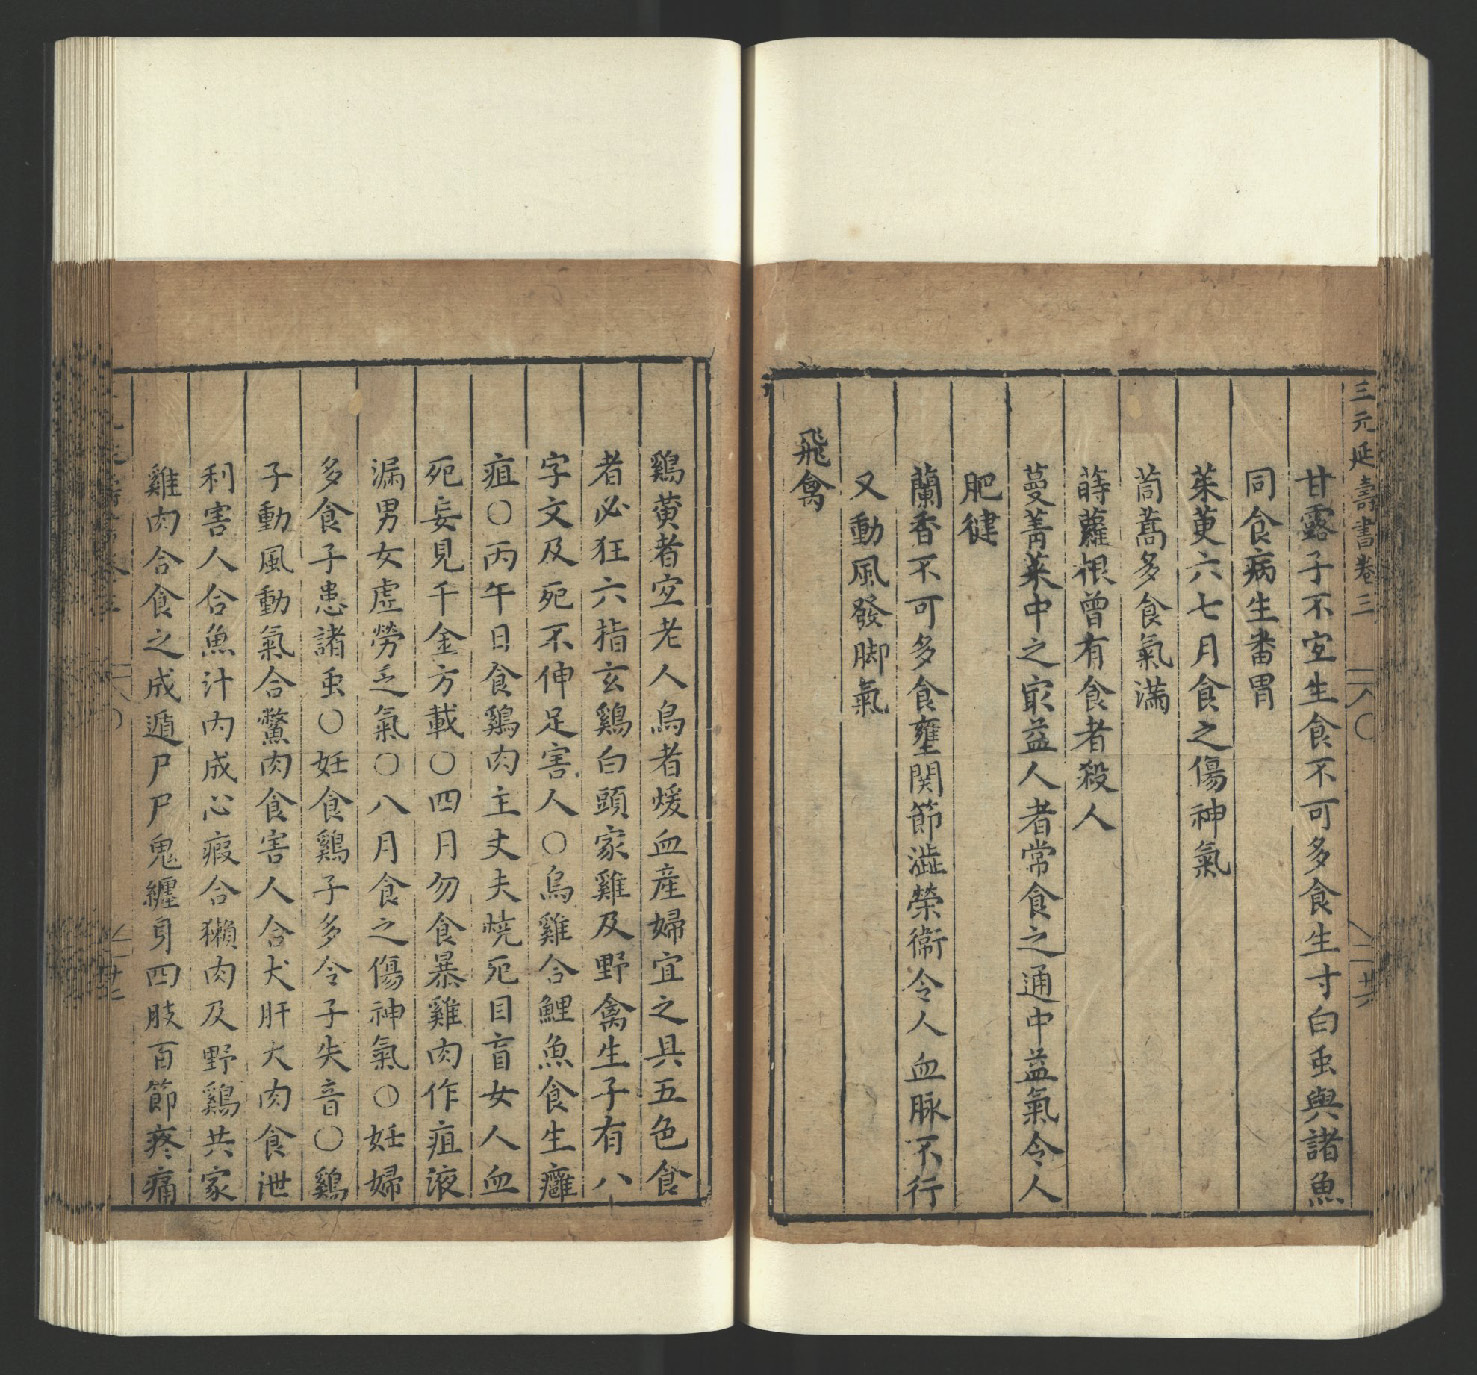 三元延壽書卷三
甘露子不宜生食不可多食生寸白虫與諸魚
同食病生番胃
茱萸六七月食之傷神氣
茼蒿多食氣滿
蒔蘿根曾有食者殺人
蔓菁菜中之㝡益人者常食之通中益氣令人
肥健
蘭香不可多食壅関節澁榮衛令人血脉不行
又動風發脚氣
飛禽
鷄黃者宜老人烏者煖血產婦宜之具五色食
者必狂六指玄鷄白頭家雞及野禽生子有八
字文及死不伸足害人○烏雞合鯉魚食生癰
疽○丙午日食鷄肉主丈夫燒死目盲女人血
死妄見千金方載○四月勿食暴雞肉作疽液
漏男女虛勞乏氣○八月食之傷神氣○妊婦
多食子患諸虫○妊食鷄子多令子失音○鷄
子動風動氣合鱉肉食害人合犬肝犬肉食泄
利害人合魚汁肉成心瘕合獺肉及野鷄共家
雞肉合食之成遁尸尸鬼纏身四肢百節疼痛